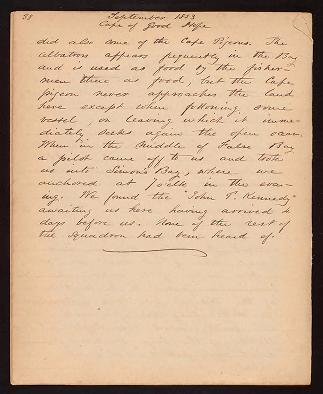 58
September 1853
Cape of Good Hope
did also some of the Cape Pigeons. The
albatross appears frequently in the Bay
and is used as food by the fisher-
men there as food, but the Cape
pigeon never approaches the land
here except when following some
vessel, on leaving which it imme-
diately seeks again the open ocean.
When in the middle of False Bay
a pilot came off to us and took
us into Simon's Bay, where we
anchored at o'clk, in the even-
ing. We found the "John P. Kennedy"
awaiting us here having arrived
days before us. None of the rest of
the squadron had been heard of.